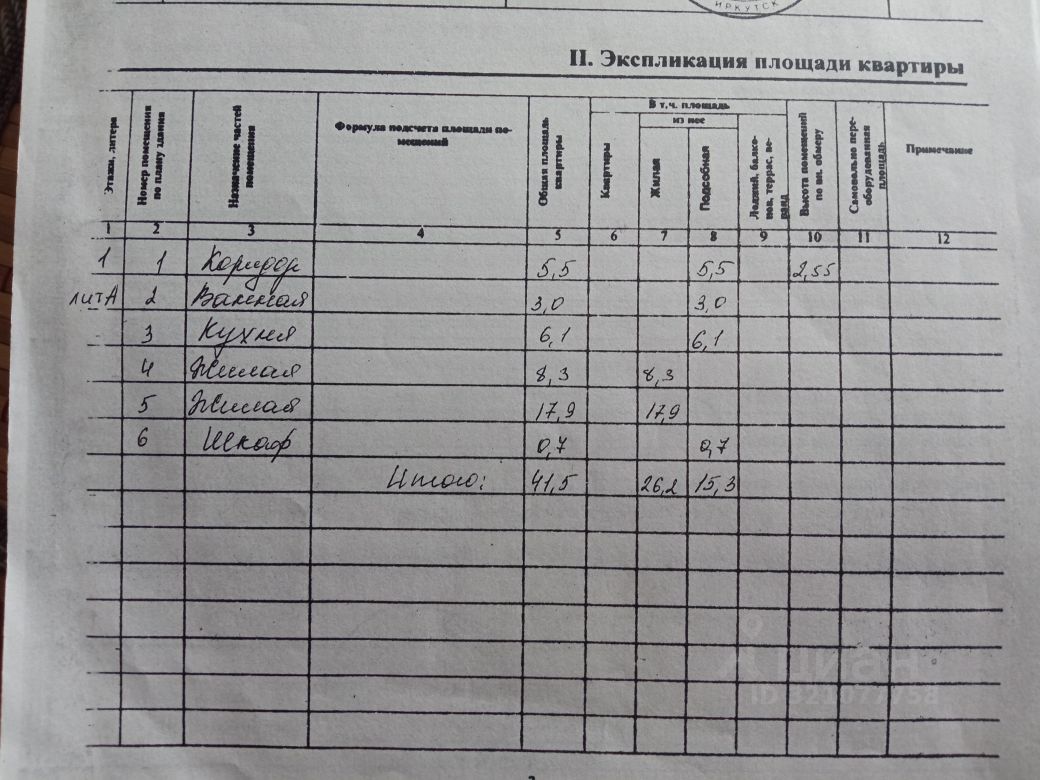 ИРКУТСК
II. Экспликация площади квартиры
Этажи, литера
Номер помещения по плану здания
Назначение частей помещения
Формула подсчета площади по-
мещений
Общая площадь квартиры
В т.ч. площадь
из нее
Квартиры
Жилая
Подсобная
Лоджий, балко-
нов, террас, ве-
ранд
Высота помещений по вн. обмеру
Самовольно пере-
оборудованная площадь
Примечание
1 2 3 4 5 6 7 8 9 10 11 12
1 1 Коридор 5,5 5,5 2,55
лит А 2 Ванная 3,0 3,0
3 Кухня 6,1 6,1
4 Жилая 8,3 8,3
5 Жилая 17,9 17,9
6 Шкаф 0,7 0,7
Итого: 41,5 26,2 15,3
циан